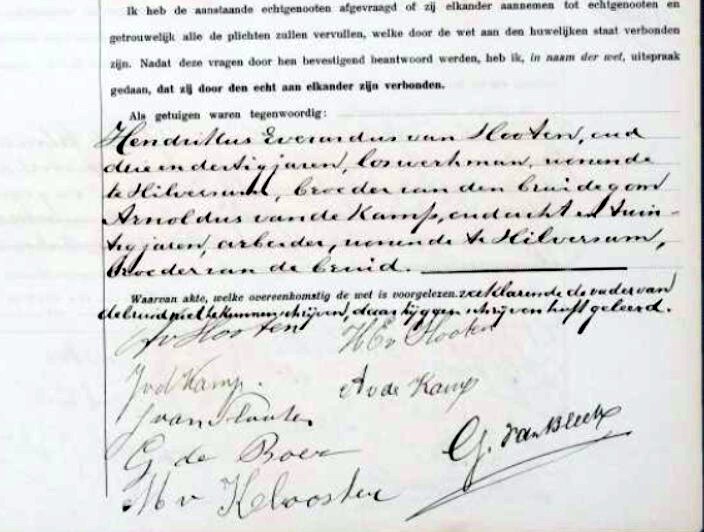 Ik heb de aanstaande echtgenooten afgevraagd of zij elkander aannemen tot echtgenooten en
getrouwelijk alle de plichten zullen vervullen, welke door de wet aan den huwelijken staat verbonden
zijn. Nadat deze vragen door hen bevestigend beantwoord werden, heb ik, in naam der wet, uitspraak
gedaan, dat zij door den echt aan elkander zijn verbonden.
Als getuigen waren tegenwoordig:
Hendrikus Everardus van Hooten, oud
drie en dertig jaren, los werkman, wonende
te Hilversum, broeder van den bruidegom
Arnoldus van de Kamp, oud acht en twin-
tig jaren, arbeider, wonende te Hilversum,
broeder van de bruid.
Waarvan akte, welke overeenkomstig de wet is voorgelezen. verklarende de vader van
de bruid niet te kunnen schrijven, daar hij geen schrijven heeft geleerd.
A v Hooten H E v Hooten
J v d Kamp. A v de Kamp
J van
G de Boer G. van
M v Klooster